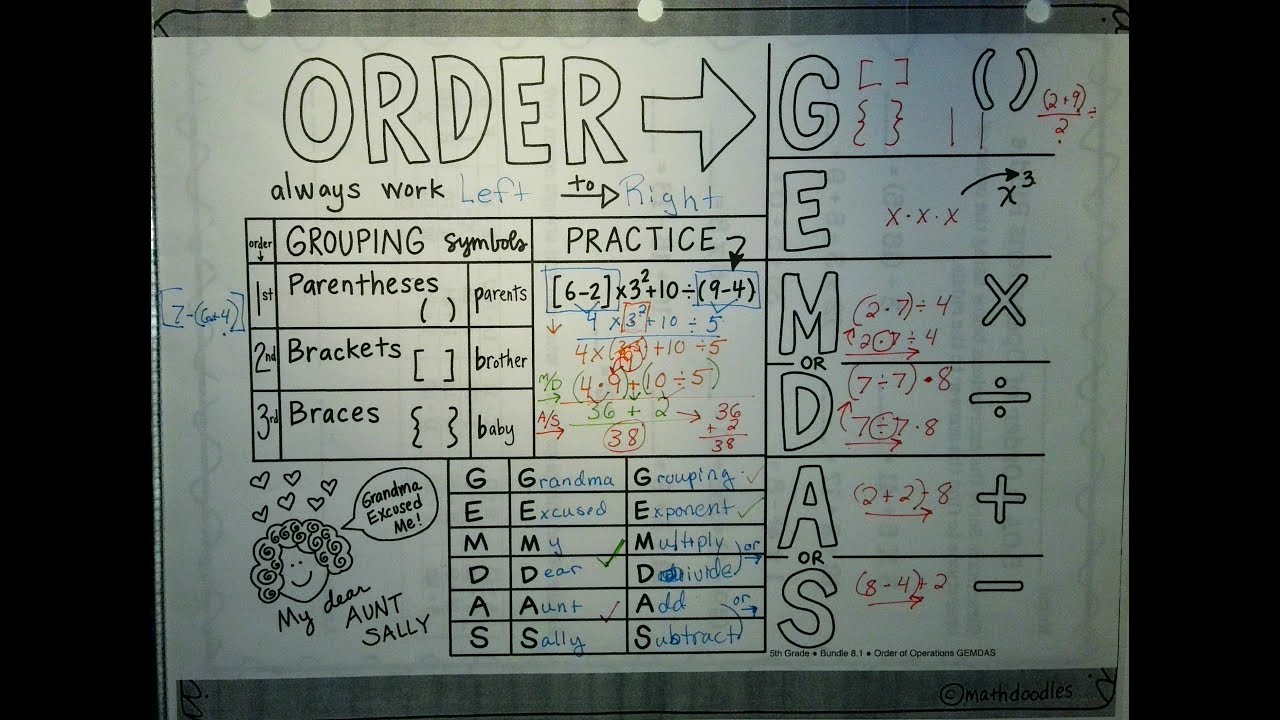 ORDER
always work Left to Right
order GROUPING symbols PRACTICE
1st Parentheses ( ) parents
2nd Brackets [ ] brother
3rd Braces { } baby
[6-2]×3²+10÷(9-4)
4 ×3²+10 ÷ 5
+10 ÷5
M/D (4·9)+(10÷5)
A/S 36 + 2 → 36
+ 2
38
38
Grandma Excused Me!
My dear AUNT SALLY
G Grandma Grouping
E Excused Exponent
M My Multiply
or
D Dear Divide
A Aunt Add
or
S Sally Subtract
G [ ] ( )
{ } | |
(2+9)
2
÷
E x³
x·x·x
M ×
(2·7)÷4
2·7÷4
OR
D ÷
(7÷7)·8
7÷7·8
A +
(2+2)-8
OR
S −
(8-4)+2
5th Grade • Bundle 8.1 • Order of Operations GEMDAS
©mathdoodles